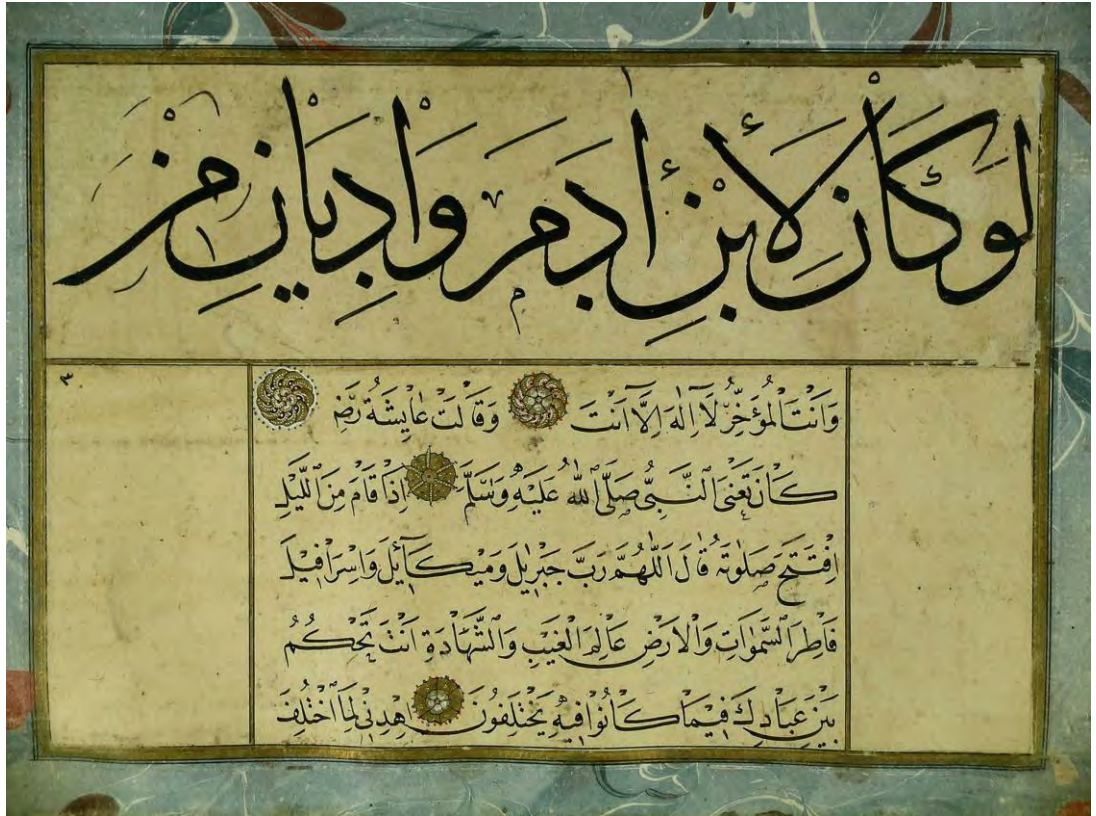 لَوْ كَانَ لِأَبْنِ اٰدَمَ وَادِيَانِ مِنْ
وَاَنْتَ الْمُؤَخِّرُ لَآ اِلٰهَ اِلَّآ اَنْتَ وَقَالَتْ عَايِشَةُ رَضِ
كَانَ تَعْنِى اَلنَّبِىُّ صَلَّى اللّٰهُ عَلَيْهِ وَسَلَّمَ اِذَا قَامَ مِنَ اَللَّيْلِ
اِفْتَتَحَ صَلٰوتَهُ قَالَ اَللّٰهُمَّ رَبَّ جَبْرَٓئِلَ وَمَيْكَآئِٔلَ وَاِسْرَافِيْلَ
فَاطِرَ اَلسَّمٰوَاتِ وَالْاَرْضِ عَالِمَ الْغَيْبِ وَالشَّهَادَةِ اَنْتَ تَحْكُمُ
بَيْنَ عِبَادِكَ فِيْمَا كَانُوْا فِيْهِ يَخْتَلِفُوْنَ اِهْدِنِىْ لِمَا اَخْتُلِفَ
٣